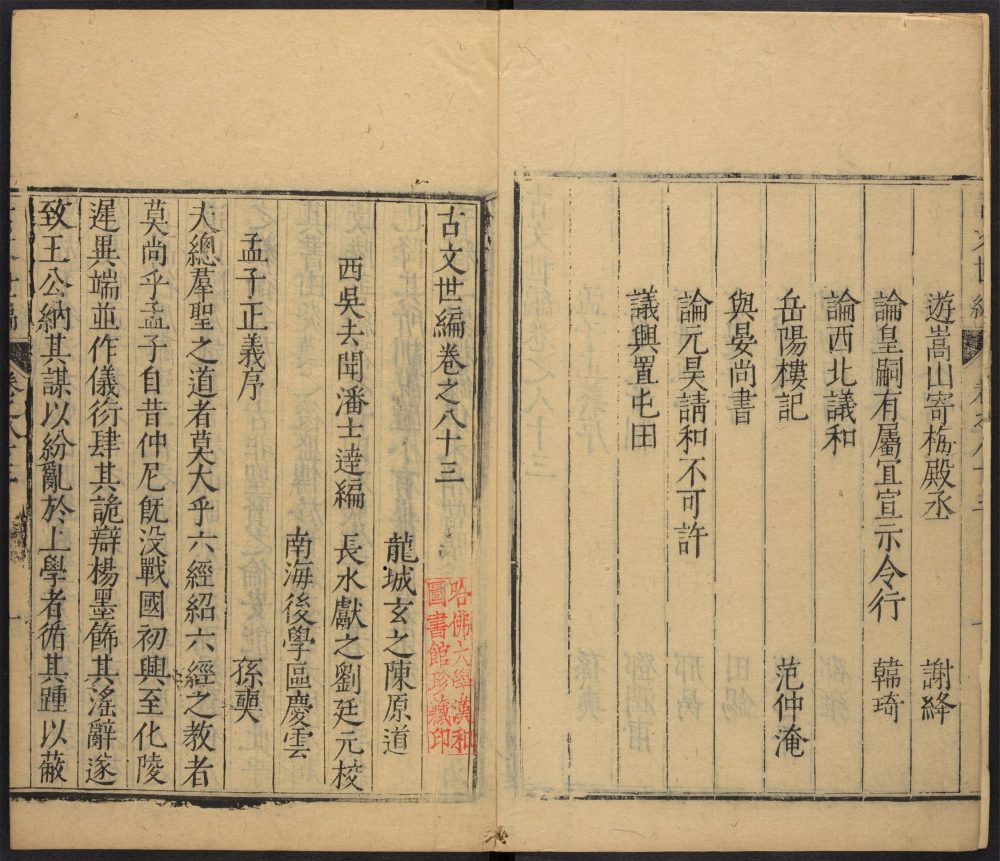 遊嵩山寄梅殿丞 謝絳
論皇嗣有屬宜宣示令行 韓琦
論西北議和
岳陽樓記 范仲淹
與晏尚書
論元昊請和不可許
議興置屯田
古文世編卷之八十三
龍城玄之陳原道
西吳去聞潘士達編 長水獻之劉廷元校
南海後學區慶雲
孟子正義序 孫奭
夫總羣聖之道者莫大乎六經紹六經之教者
莫尚乎孟子自昔仲尼旣没戰國初興至化陵
遲異端並作儀衍肆其詭辯楊墨飾其滛辭遂
致王公納其謀以紛亂於上學者循其踵以蔽
哈佛大學漢和
圖書館珍藏印